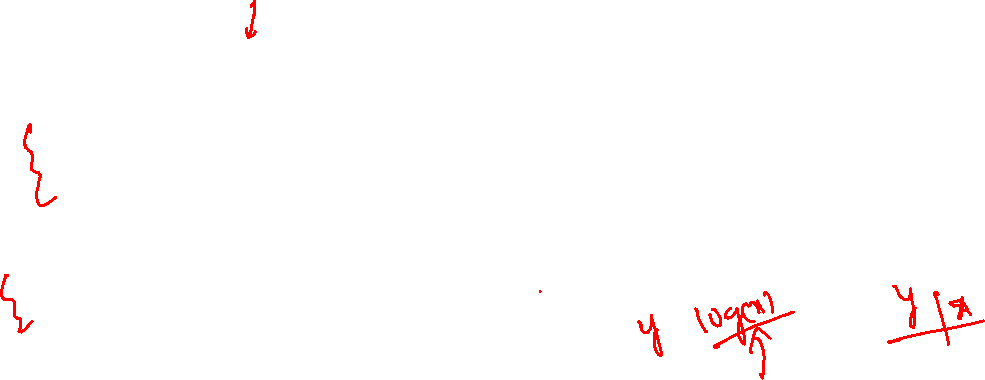 y log(x) y | x